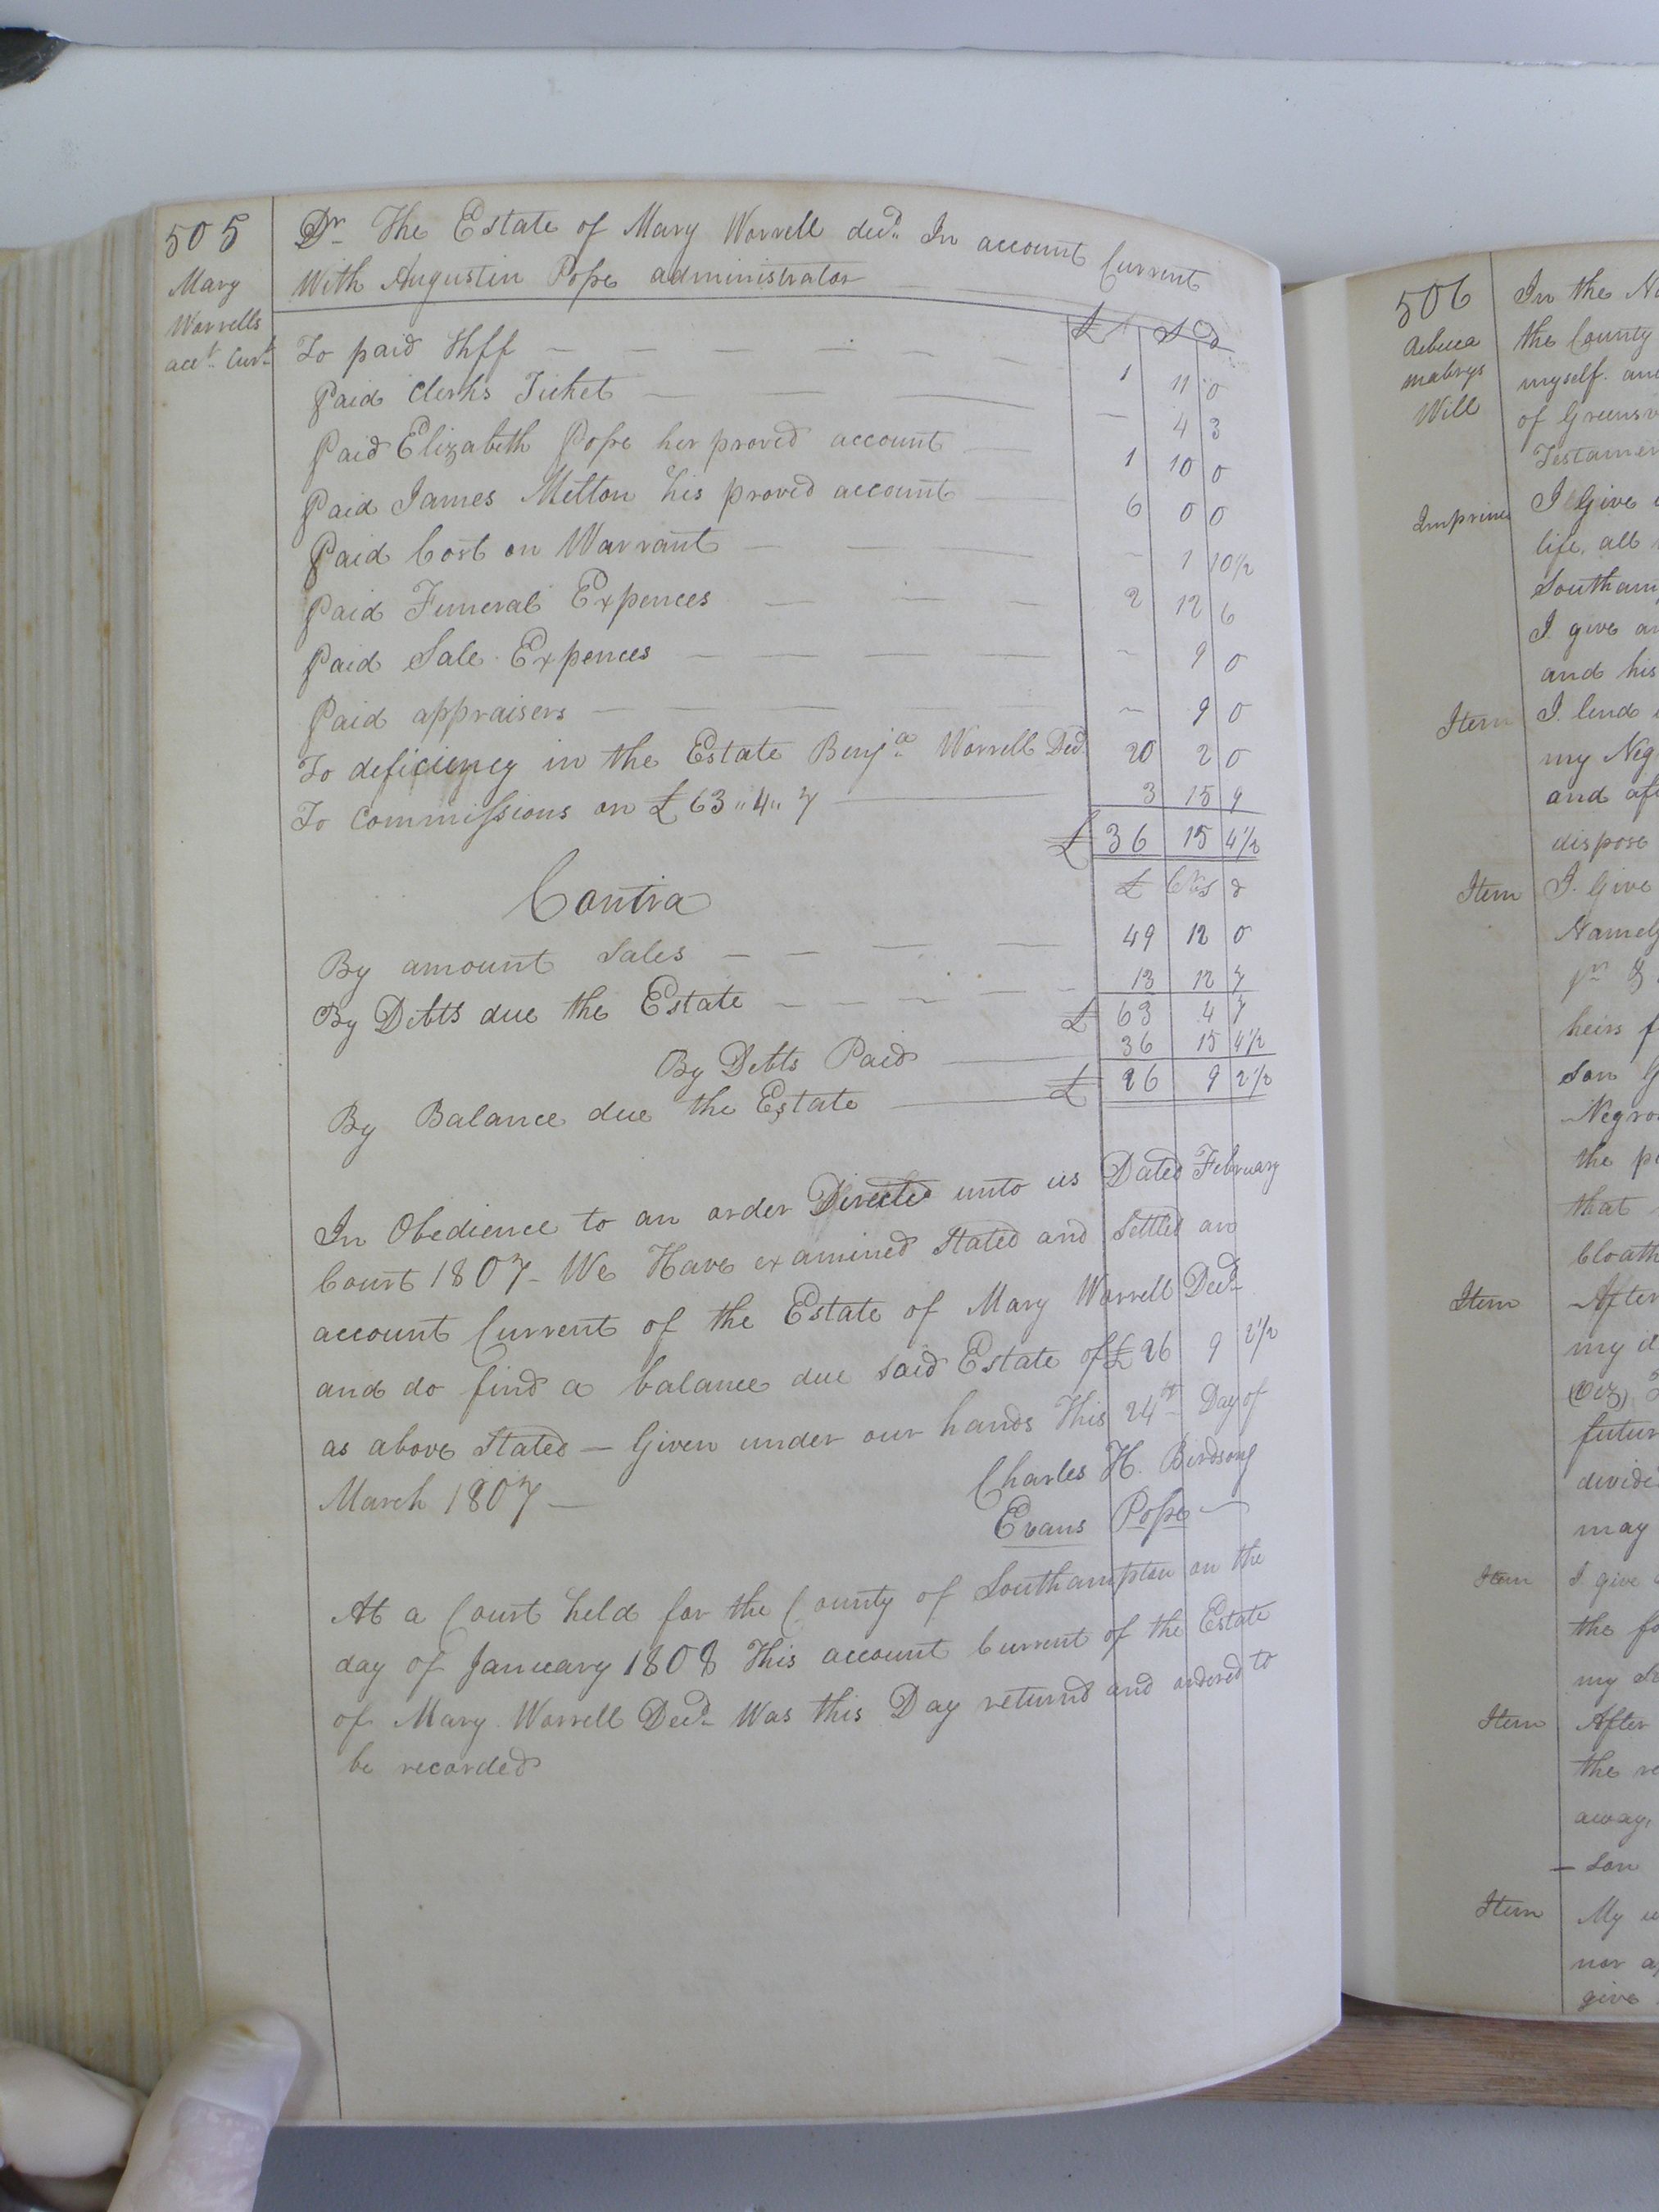 505
Mary
Worrells
acct. Curt.
Dr. The Estate of Mary Worrell decd. In account Current
With Augustin Pope administrator
£ S D
To paid Shff — 1 11 0
Paid Clerks Ticket — — 4 3
Paid Elizabeth Pope her proved account — 1 10 0
Paid James Mitton his proved account — 6 0 0
Paid Cost on Warrant — — 1 10½
Paid Funeral Expences — 2 12 6
Paid Sale Expences — — 9 0
Paid appraisers — — 9 0
To deficiency in the Estate Benja. Worrell Decd. 20 2 0
To Commissions on £63 „ 4 „ 7 — 3 15 9
£ 36 15 4½
Contra £ S d
By amount Sales — 49 12 0
By Debts due the Estate — 13 12 7
£ 63 4 7
By Debts Paid — 36 15 4½
By Balance due the Estate — £ 26 9 2½
In Obedience to an order Directed unto us Dated February
Court 1807 - We Have examined Stated and Settled an
account Current of the Estate of Mary Worrell Decd.
and do find a balance due said Estate of £26 9 2½
as above Stated — Given under our hands This 24th Day of
March 1807 —
Charles H. Birdsong
Evans Pope —
At a Court held for the County of Southampton on the
day of January 1808 This account Current of the Estate
of Mary Worrell Decd. Was this Day returnd and ordered to
be recorded
506
Rebecca
mabrys
Will
In the
the County
myself. and
of
I Give
life, all
I give
and his
Item I lend
my Neg
and
dispose
Item I Give
Namely
heirs
Son
Negro
the
that
Cloath
Item After
my
divide
may
Item I give
the
my
Item After
the
away,
Son
Item My
nor
give